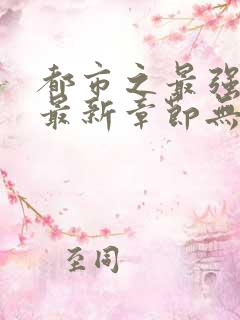 都市之最强
最新章节无
至同